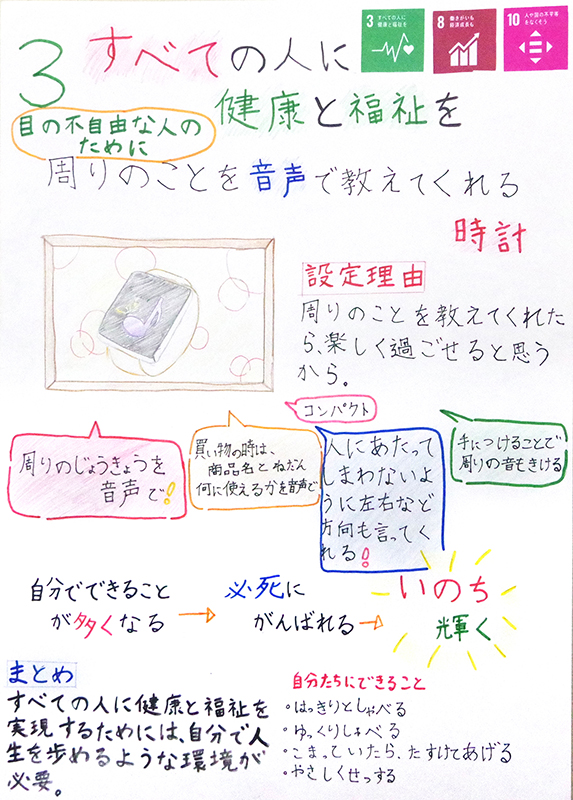 3 すべての人に
健康と福祉を
3 すべての人に
健康と福祉を
8 働きがいも
経済成長も
10 人や国の不平等
をなくそう
目の不自由な人の
ために
周りのことを音声で教えてくれる
時計
設定理由
周りのことを教えてくれた
ら、楽しく過ごせると思う
から。
コンパクト
周りのじょうきょうを
音声で!
買い物の時は、
商品名とねだん
何に使えるかを音声で
人にあたって
しまわないよ
うに左右など
方向も言ってく
れる!
手につけることで
周りの音もきける
自分でできること
が多くなる
必死に
がんばれる
いのち
輝く
まとめ
すべての人に健康と福祉を
実現するためには、自分で人
生を歩めるような環境が
必要。
自分たちにできること
・はっきりとしゃべる
・ゆっくりしゃべる
・こまっていたら、たすけてあげる
・やさしくせっする